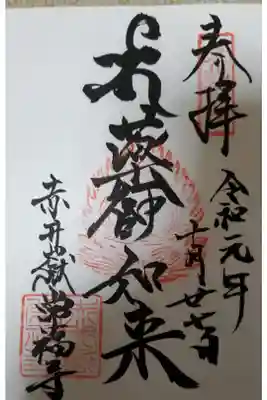 奉拝
令和元年
十月廿七日
薬師如来
赤井嶽常福寺